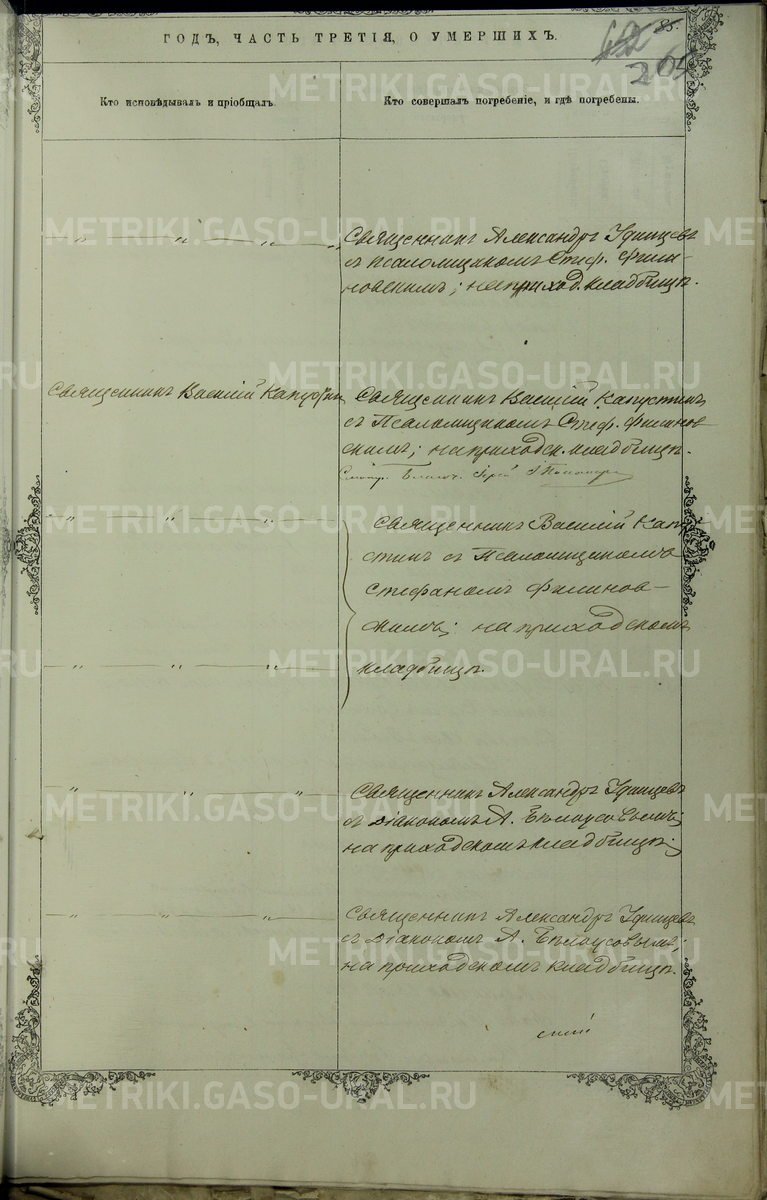 85.
42
265
ГОДЪ, ЧАСТЬ ТРЕТІЯ, О УМЕРШИХЪ.
Кто исповѣдывалъ и пріобщалъ.
Кто совершалъ погребеніе, и гдѣ погребены.
Священникъ Александръ Удинцевъ
съ псаломщикомъ Стеф. Фили-
новскимъ; на приход. кладбищѣ.
Священникъ Василій Капустинъ
Священникъ Василій Капустинъ
съ Псаломщикомъ Стеф. Филинов
скимъ; на приходск. кладбищѣ.
Священникъ Василій Капу
стинъ съ Псаломщикомъ
Стефаномъ Филинов-
скимъ; на приходскомъ
кладбищѣ.
Священникъ Александръ Удинцевъ
съ Діакономъ А. Бѣлоусовымъ;
на приходскомъ кладбищѣ;
Священникъ Александръ Удинцевъ
съ Діакономъ А. Бѣлоусовымъ;
на приходскомъ кладбищѣ.
METRIKI.GASO-URAL.RU